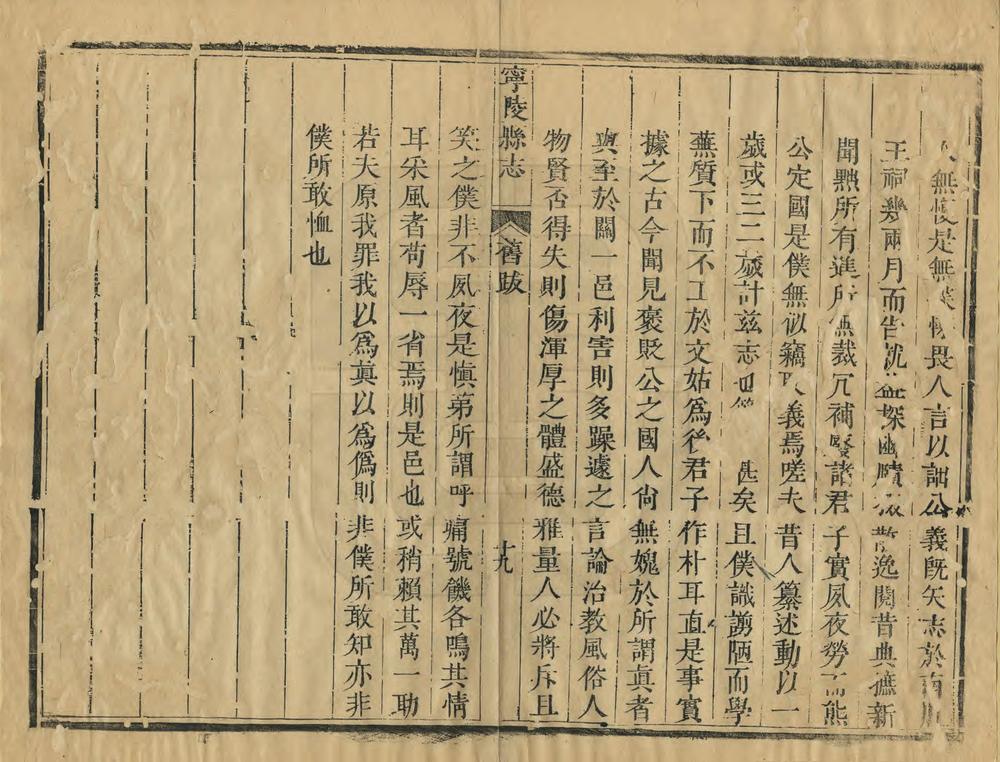 無愧是無怍畏人言以詘公義旣矢志於
王祠幾兩月而告沈探幽賾散逸閱昔典摭新
聞㸃所有進所無裁冗補諸君子實夙夜勞而熊
公定國是僕無似竊義焉嗟夫昔人纂述動以一
歲或三二歲計兹志甚矣且僕識謭陋而學
蕪質下而不工於文姑爲後君子作朴耳直是事實
據之古今聞見褒貶公之國人尙無媿於所謂眞者
與至於關一邑利害則多躁遽之言論治教風俗人
物賢否得失則傷渾厚之體盛德雅量人必將斥且
寧陵縣志
舊跋
十九
笑之僕非不夙夜是愼第所謂呼痛號饑各鳴其情
耳采風者苟辱一省焉則是邑也或稍賴其萬一助
若夫原我罪我以爲眞以爲僞則非僕所敢知亦非
僕所敢恤也